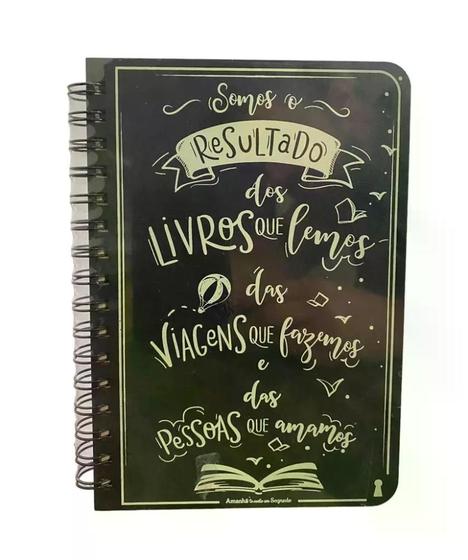 Somos o
ReSULTaDO
dos
LIVROS QUE lemos
das
VIAGeNS QUE fazemos
e
das
PeSSOAS QUE amamos
Amanhã te conto um Segredo